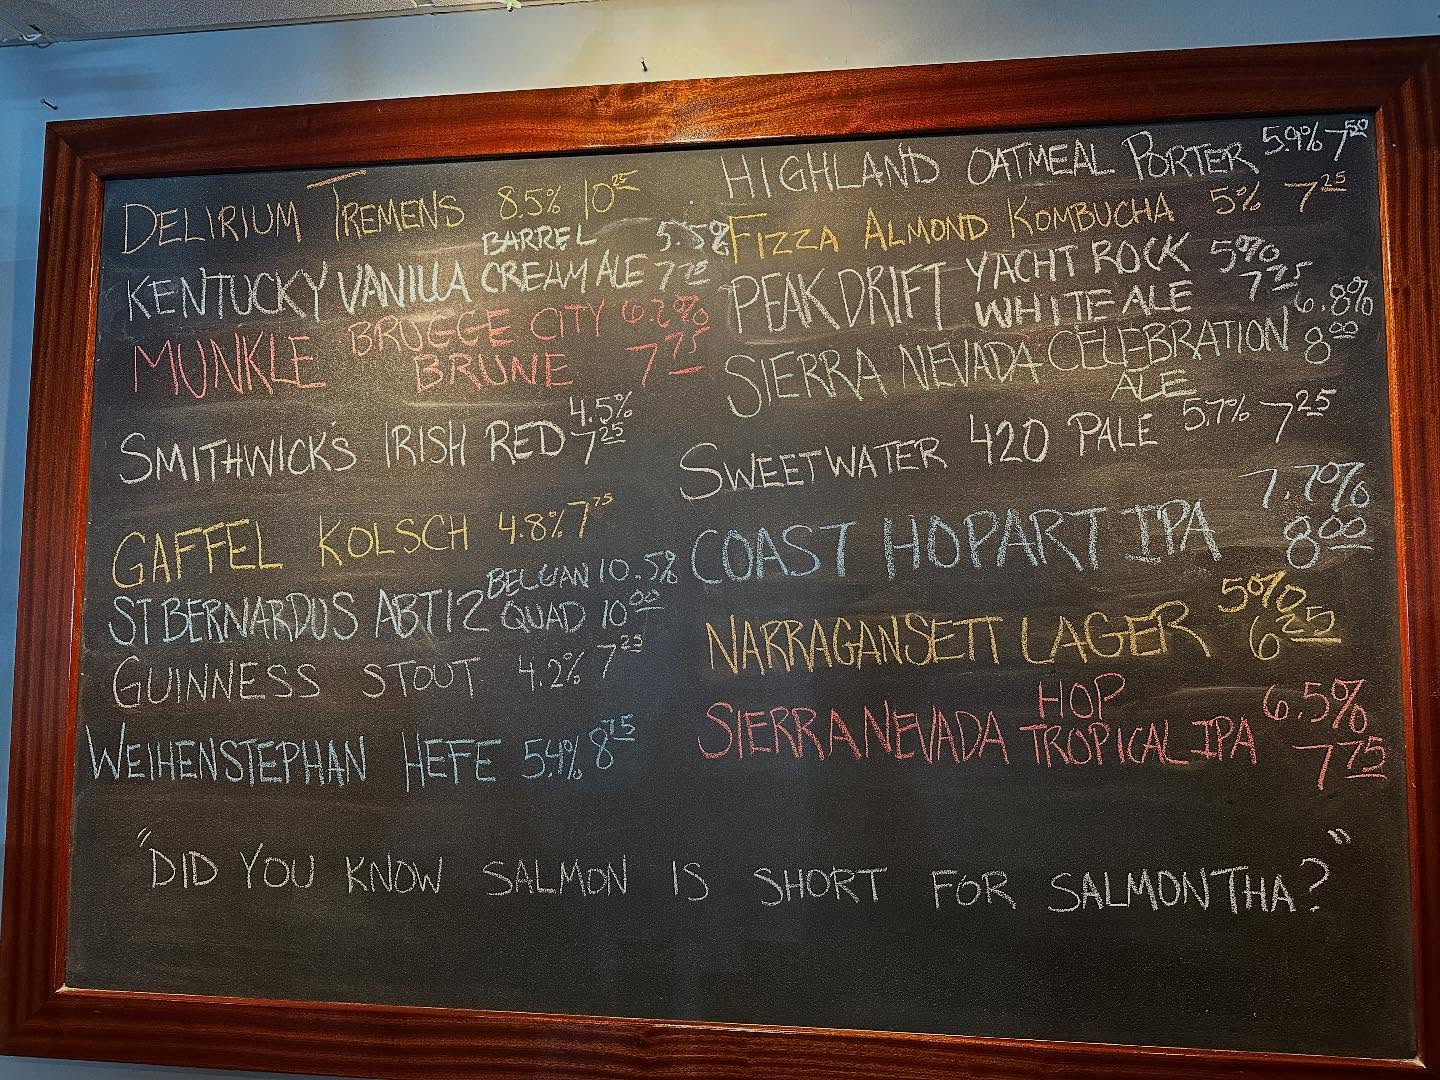 DELIRIUM TREMENS 8.5% 10 25
BARREL 5.5%
KENTUCKY VANILLA CREAM ALE 7 75
MUNKLE BRUGGE CITY 6.2%
BRUNE 7 75
4.5%
SMITHWICK'S IRISH RED 7 25
GAFFEL KOLSCH 4.8% 7 75
BELGIAN 10.5%
ST BERNARDUS ABT 12 QUAD 10 00
GUINNESS STOUT 4.2% 7 25
WEIHENSTEPHAN HEFE 5.4% 8 75
HIGHLAND OATMEAL PORTER 5.9% 7 50
FIZZA ALMOND KOMBUCHA 5% 7 25
PEAK DRIFT YACHT ROCK 5%
WHITE ALE 7 75
6.8%
SIERRA NEVADA CELEBRATION 8 00
ALE
SWEETWATER 420 PALE 5.7% 7 25
7.7%
COAST HOPART IPA 8 00
5%
NARRAGANSETT LAGER 6 25
HOP 6.5%
SIERRA NEVADA TROPICAL IPA 7 75
"DID YOU KNOW SALMON IS SHORT FOR SALMONTHA?"